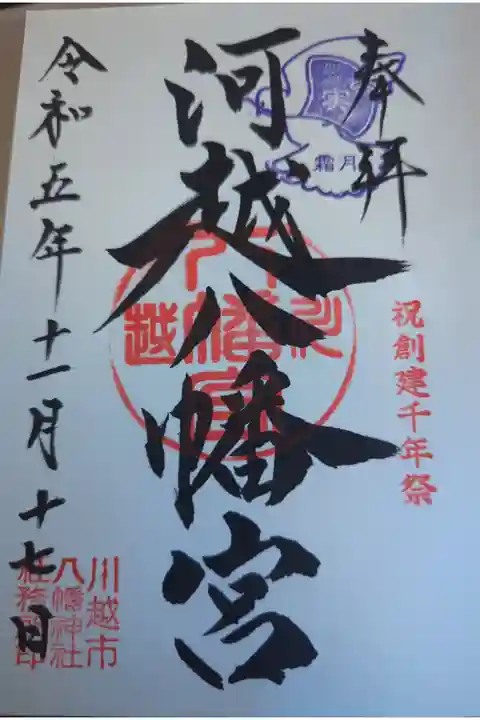 奉拝
霜月
祝創建千年祭
河越八幡宮
川越市
八幡神社
社務所印
令和五年十一月十七日